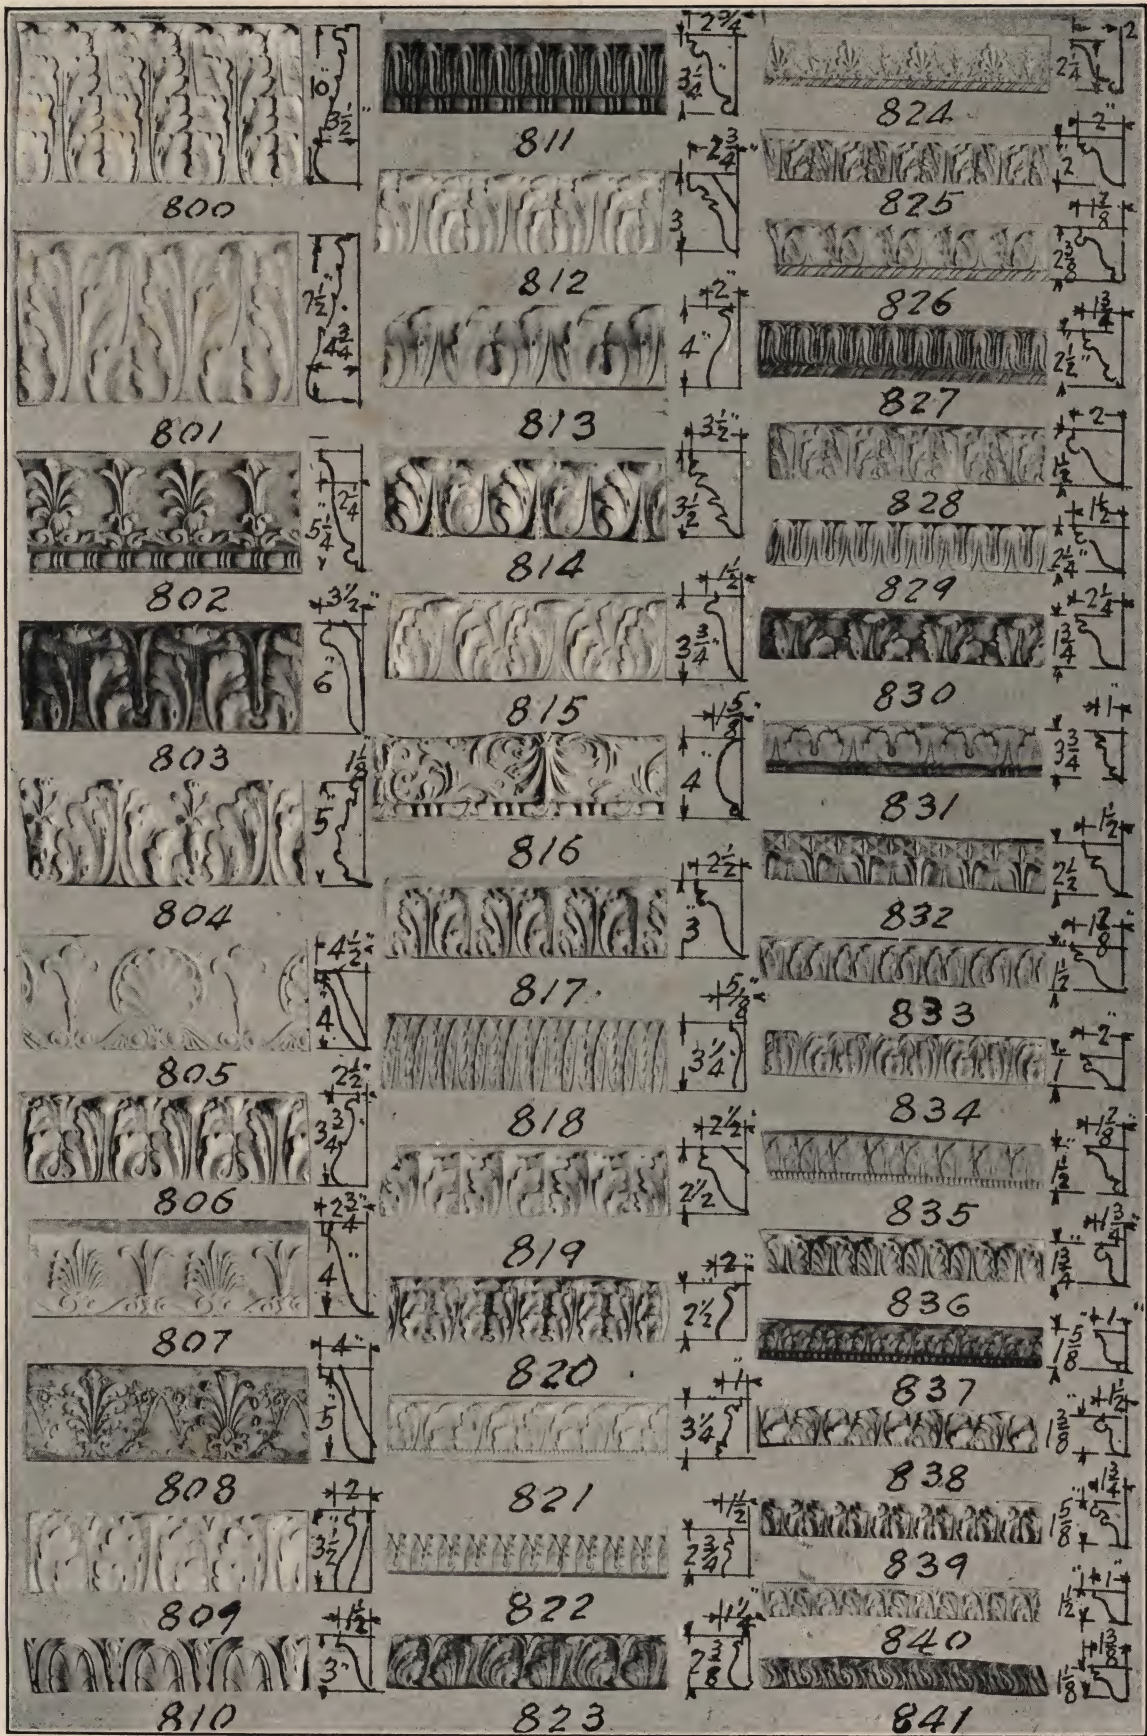 10"
3 1/2"
800
7 1/2"
4 3/4
801
5 1/4"
2 1/4
802
3 1/2"
6"
803
1 1/8
5"
804
4 1/2"
4"
805
2 1/2"
3 3/4
806
2 3/4"
4"
807
4"
5"
808
2
3 1/2
809
1 1/2"
3"
810
2 3/4
3 1/4"
811
2 3/4"
3
812
2"
4"
813
3 1/2"
3 1/2
814
1 1/2
3 3/4"
815
1 5/8"
4"
816
2 1/2
3"
817
5/8"
3 1/4
818
2 1/2"
2 1/2
819
2"
2 1/2
820
1"
3 1/4
821
1 1/2
2 3/4
822
1 1/4"
2 3/8
823
2
2 1/4
824
2"
2"
825
2 3/8
826
1 3/4"
2 1/2"
827
2
1 1/2
828
1 1/2
2 1/4"
829
2 1/4
1 3/4
830
1"
3 3/4
831
1 1/2
2 1/2
832
1 1/2
833
2"
1
834
1 1/2
835
1 3/4"
1 3/4
836
1"
1 5/8
837
1 1/2
1 3/8
838
1 3/4
1 5/8
839
1"
1 1/2
840
1 3/8
1 1/8
841